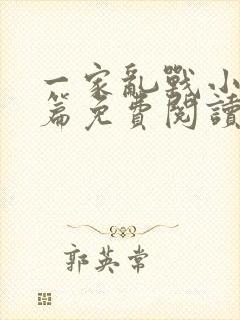 一家亂戰小
篇免費閱讀
郭英常